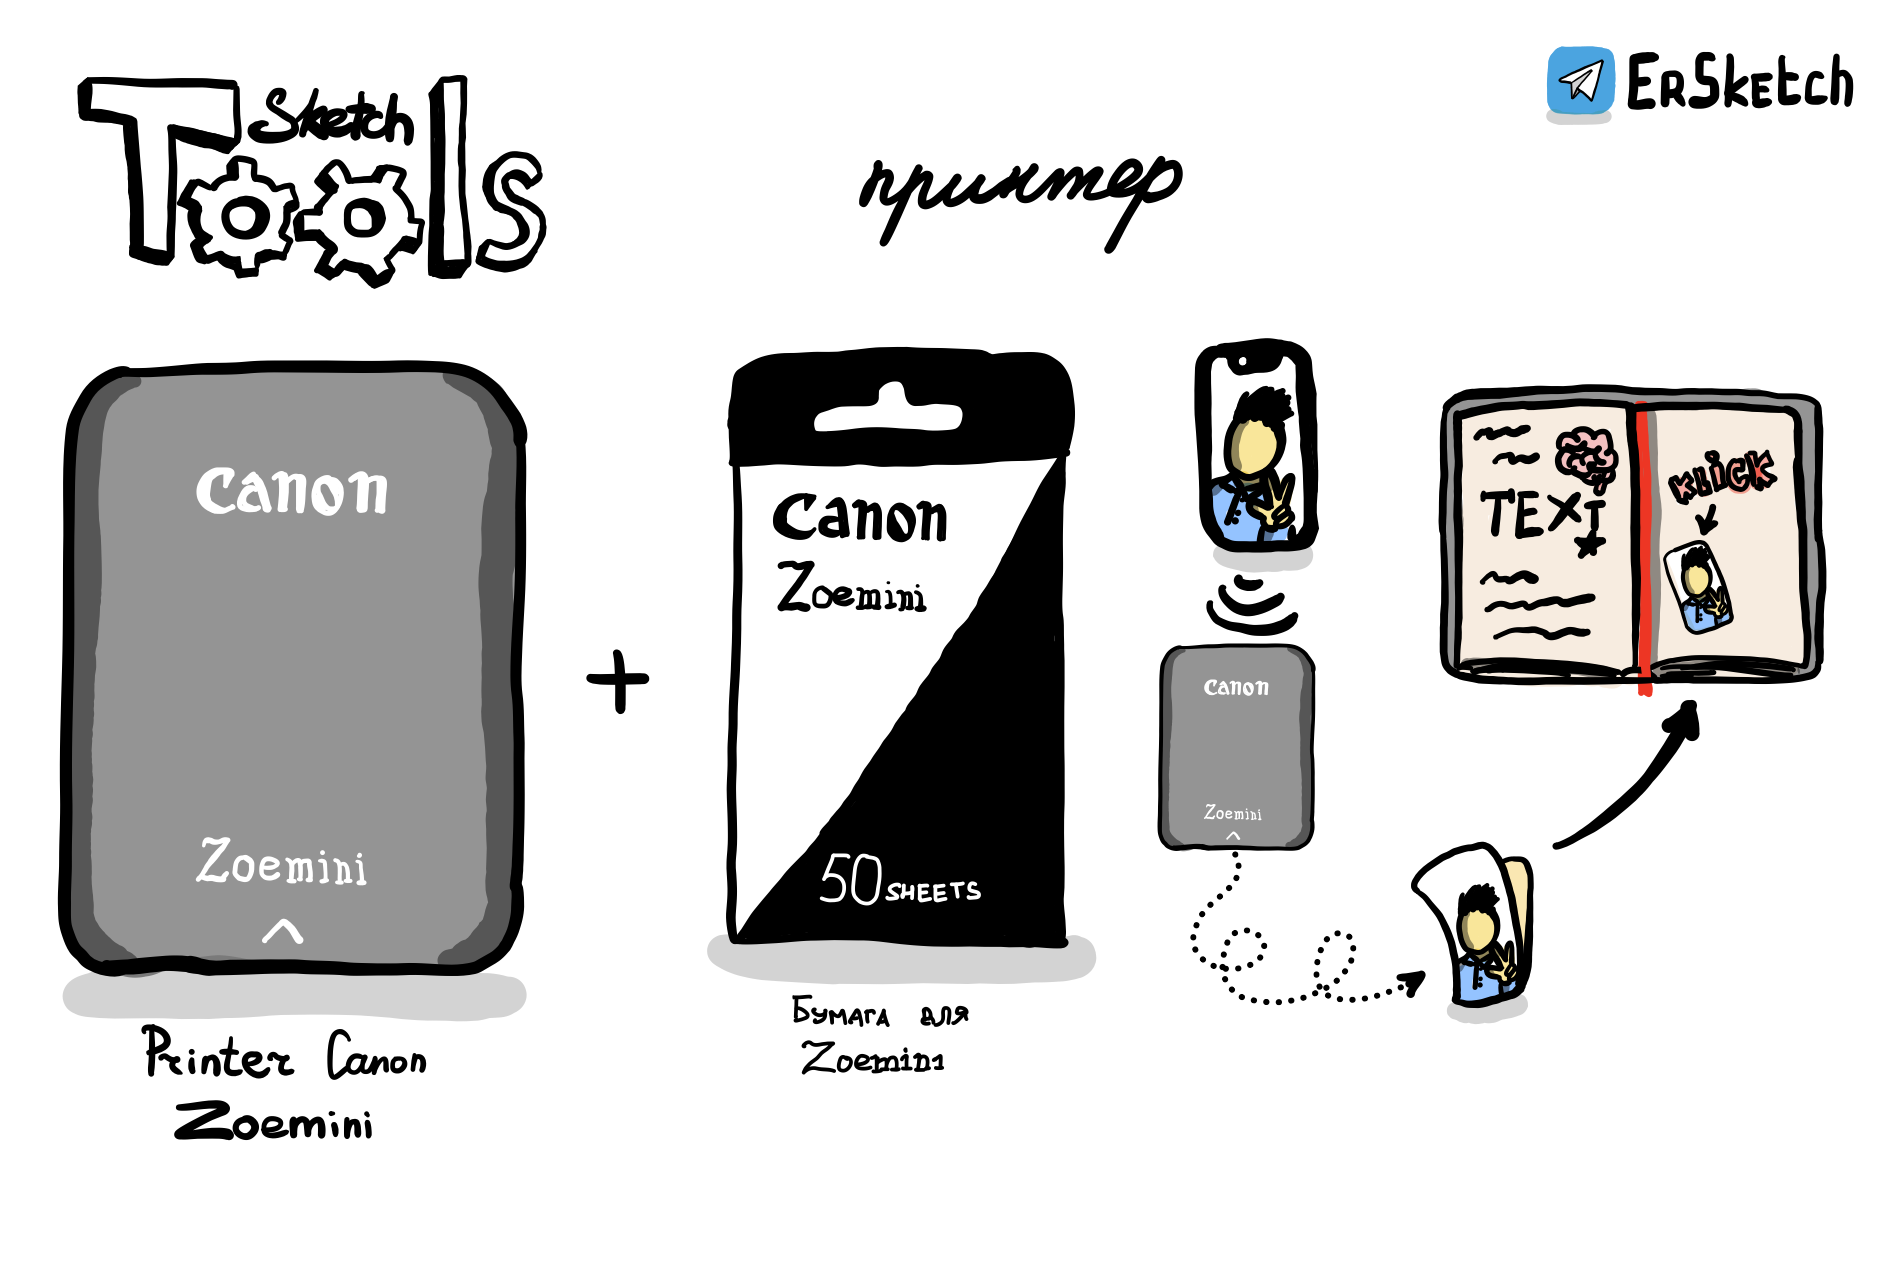 Sketch
Tools
принтер
ErSketch
Canon
Zoemini
Printer Canon
Zoemini
+
Canon
Zoemini
50 SHEETS
Бумага для
Zoemini
Canon
Zoemini
TEXT
KLICK